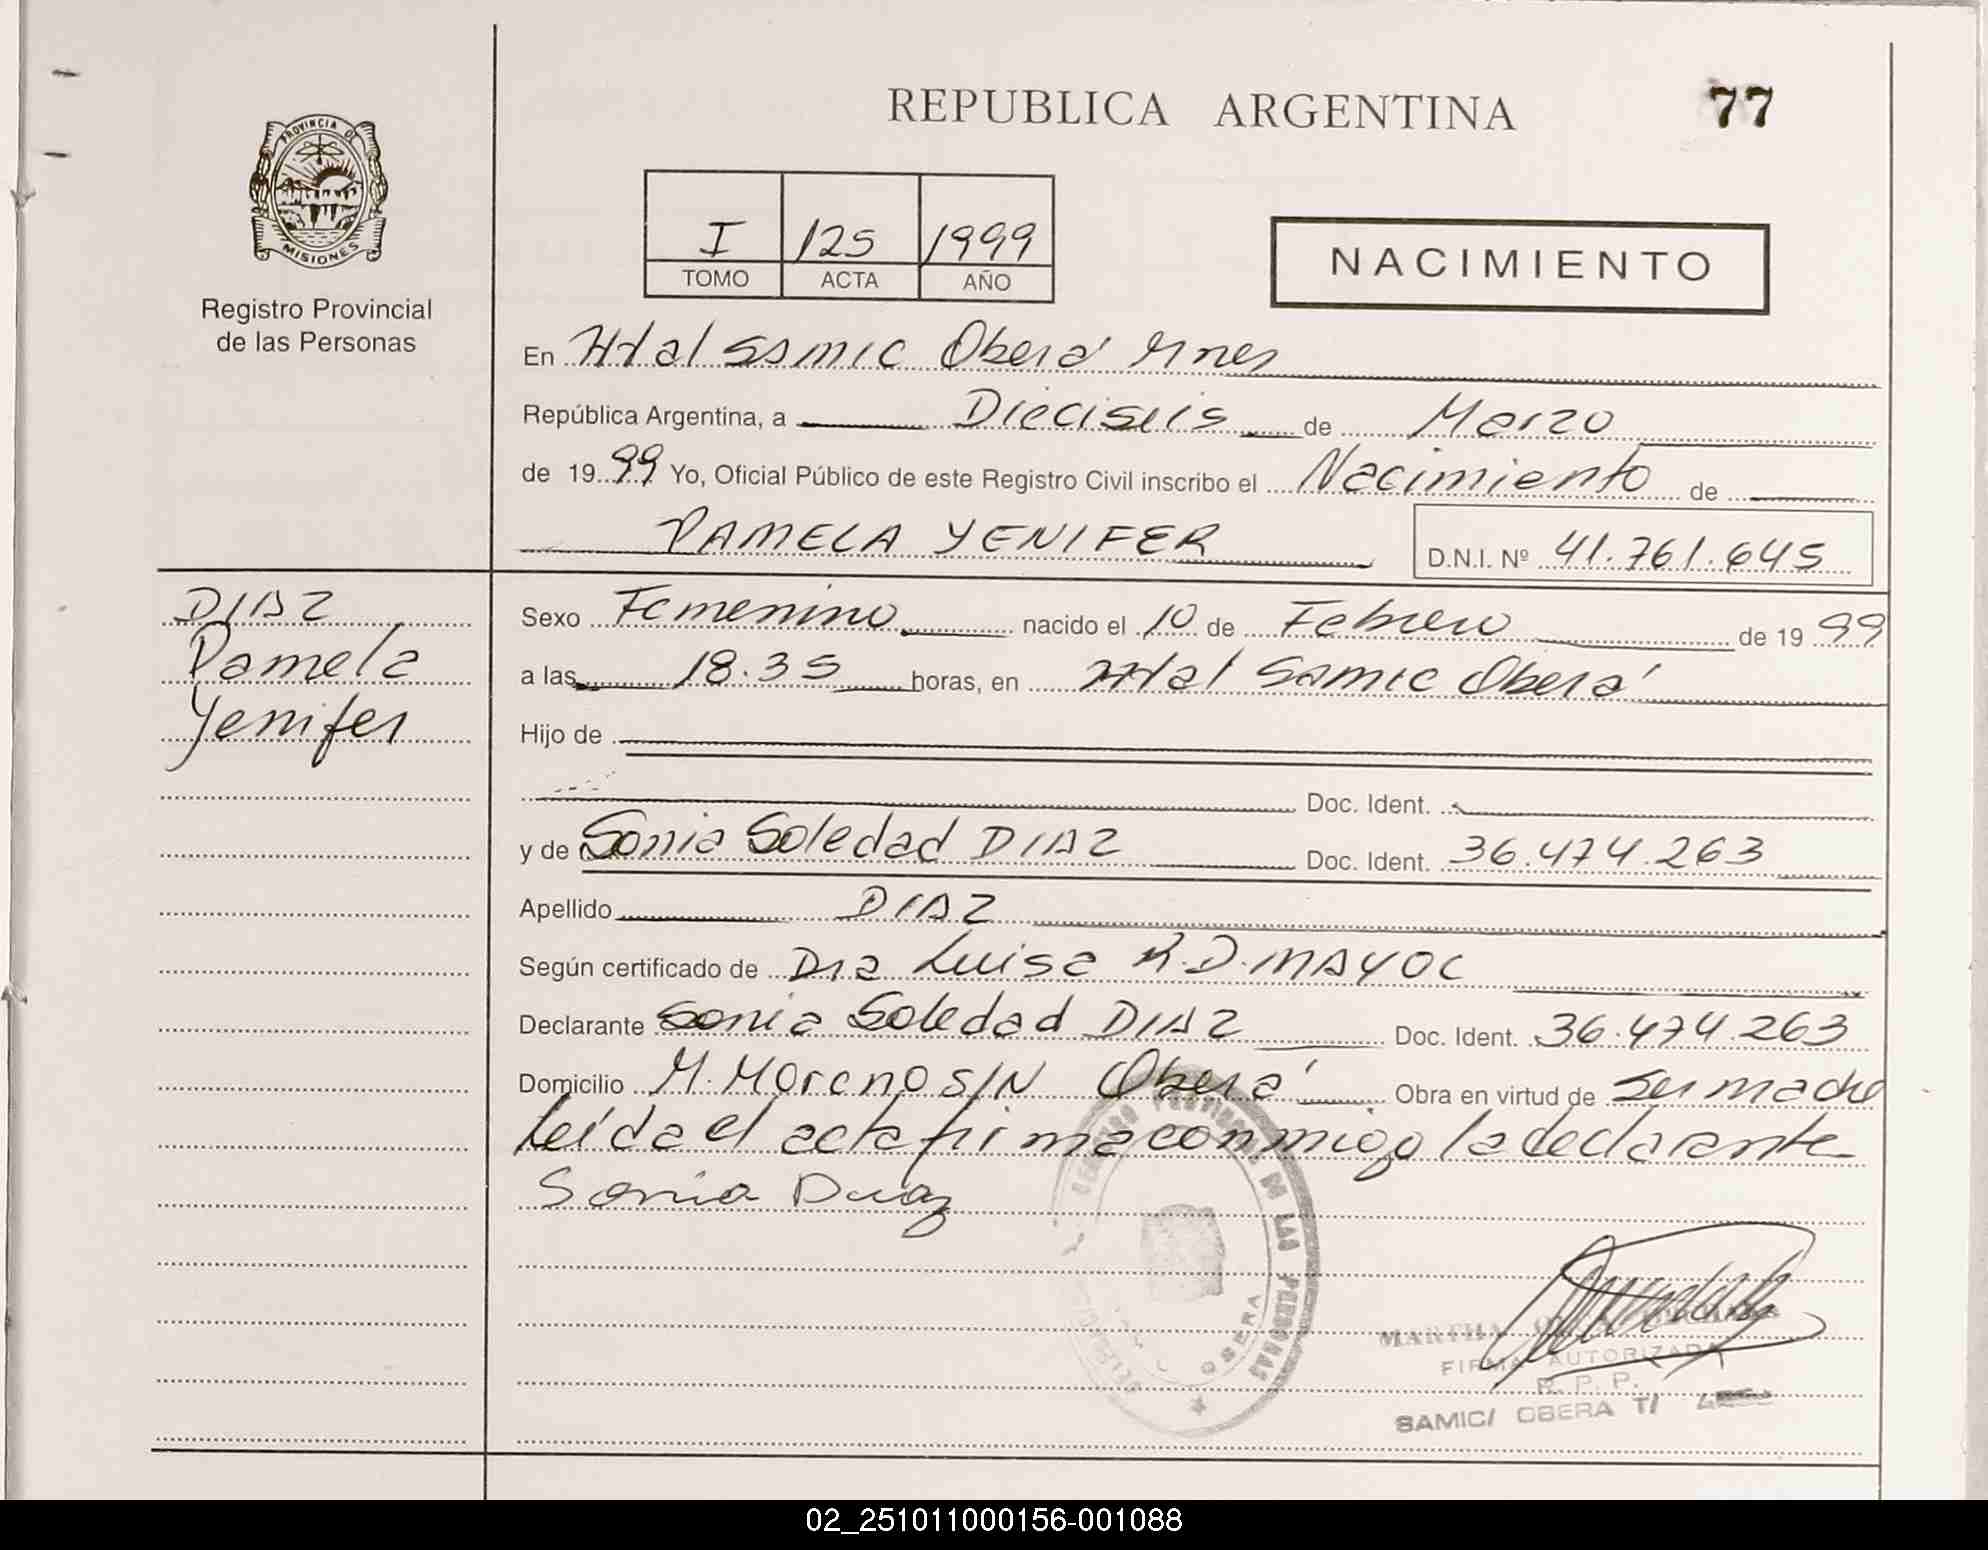 REPUBLICA ARGENTINA
77
PROVINCIA DE
MISIONES
Registro Provincial
de las Personas
I 125 1999
TOMO ACTA AÑO
NACIMIENTO
En Htal SAMIC Oberá Mnes
República Argentina, a Dieciseis de Marzo
de 1999 Yo, Oficial Público de este Registro Civil inscribo el Nacimiento de
PAMELA YENIFER D.N.I. Nº 41.761.645
DIAZ
Pamela
Yenifer
Sexo Femenino nacido el 10 de Febrero de 1999
a las 18.35 horas, en Htal Samic Oberá
Hijo de
Doc. Ident.
y de Sonia Soledad DIAZ Doc. Ident. 36.474.263
Apellido DIAZ
Según certificado de Dra Luisa R.D. MAYOL
Declarante Sonia Soledad DIAZ Doc. Ident. 36.474.263
Domicilio M. Moreno S/N Oberá Obra en virtud de ser madre
Leída el acta firma conmigo la declarante
Sonia Diaz
REGISTRO PROVINCIAL DE LAS PERSONAS
OBERA
MARTHA
FIRMA AUTORIZADA
R. P. P.
SAMIC/ OBERA T/
02_251011000156-001088